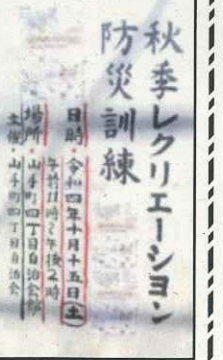 秋季レクリエーション
防災訓練
日時・令和四年十月十五日(土)
午前11時~午後2時
場所・山手町四丁目自治会館
主催 山手町四丁目自治会